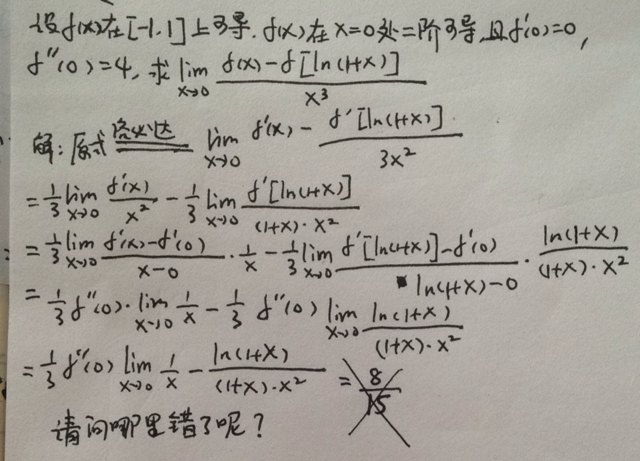 设f(x)在[-1,1]上可导.f(x)在x=0处二阶可导,且f'(0)=0,
f''(0)=4,求 lim_{x→0} \frac{f(x)-f[ln(1+x)]}{x^3}
解:原式 \xlongequal{洛必达} lim_{x→0} \frac{f'(x)-\frac{f'[ln(1+x)]}{1+x}}{3x^2}
=\frac{1}{3} lim_{x→0} \frac{f'(x)}{x^2} - \frac{1}{3} lim_{x→0} \frac{f'[ln(1+x)]}{(1+x)·x^2}
=\frac{1}{3} lim_{x→0} \frac{f'(x)-f'(0)}{x-0}·\frac{1}{x} - \frac{1}{3} lim_{x→0} \frac{f'[ln(1+x)]-f'(0)}{ln(1+x)-0}·\frac{ln(1+x)}{(1+x)·x^2}
=\frac{1}{3} f''(0)·lim_{x→0} \frac{1}{x} - \frac{1}{3} f''(0) lim_{x→0} \frac{ln(1+x)}{(1+x)·x^2}
=\frac{1}{3} f''(0) lim_{x→0} \frac{1}{x} - \frac{ln(1+x)}{(1+x)·x^2} = \frac{8}{15}
请问哪里错了呢?